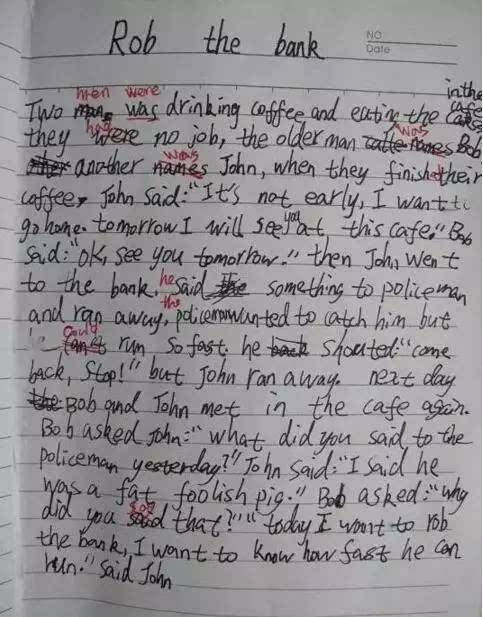 Rob the bank
NO
Date
in the
men were cafe
Two man was drinking coffee and eating the cakes
had was
they were no job, the older man names Bob
was
another names John, when they finished their
coffee, John said: "It's not early, I want to
you
go home. tomorrow I will see at this cafe." Bob
said: "OK, see you tomorrow." then John went
he
to the bank. said something to policeman
the
and ran away, policeman wanted to catch him but
could
run so fast. he back shouted: "come
back, stop!" but John ran away. next day
the Bob and John met in the cafe again.
Bob asked John: "what did you said to the
policeman yesterday?" John said: "I said he
was a fat foolish pig." Bob asked: "why
say
did you said that?" "today I want to rob
the bank, I want to know how fast he can
run." said John